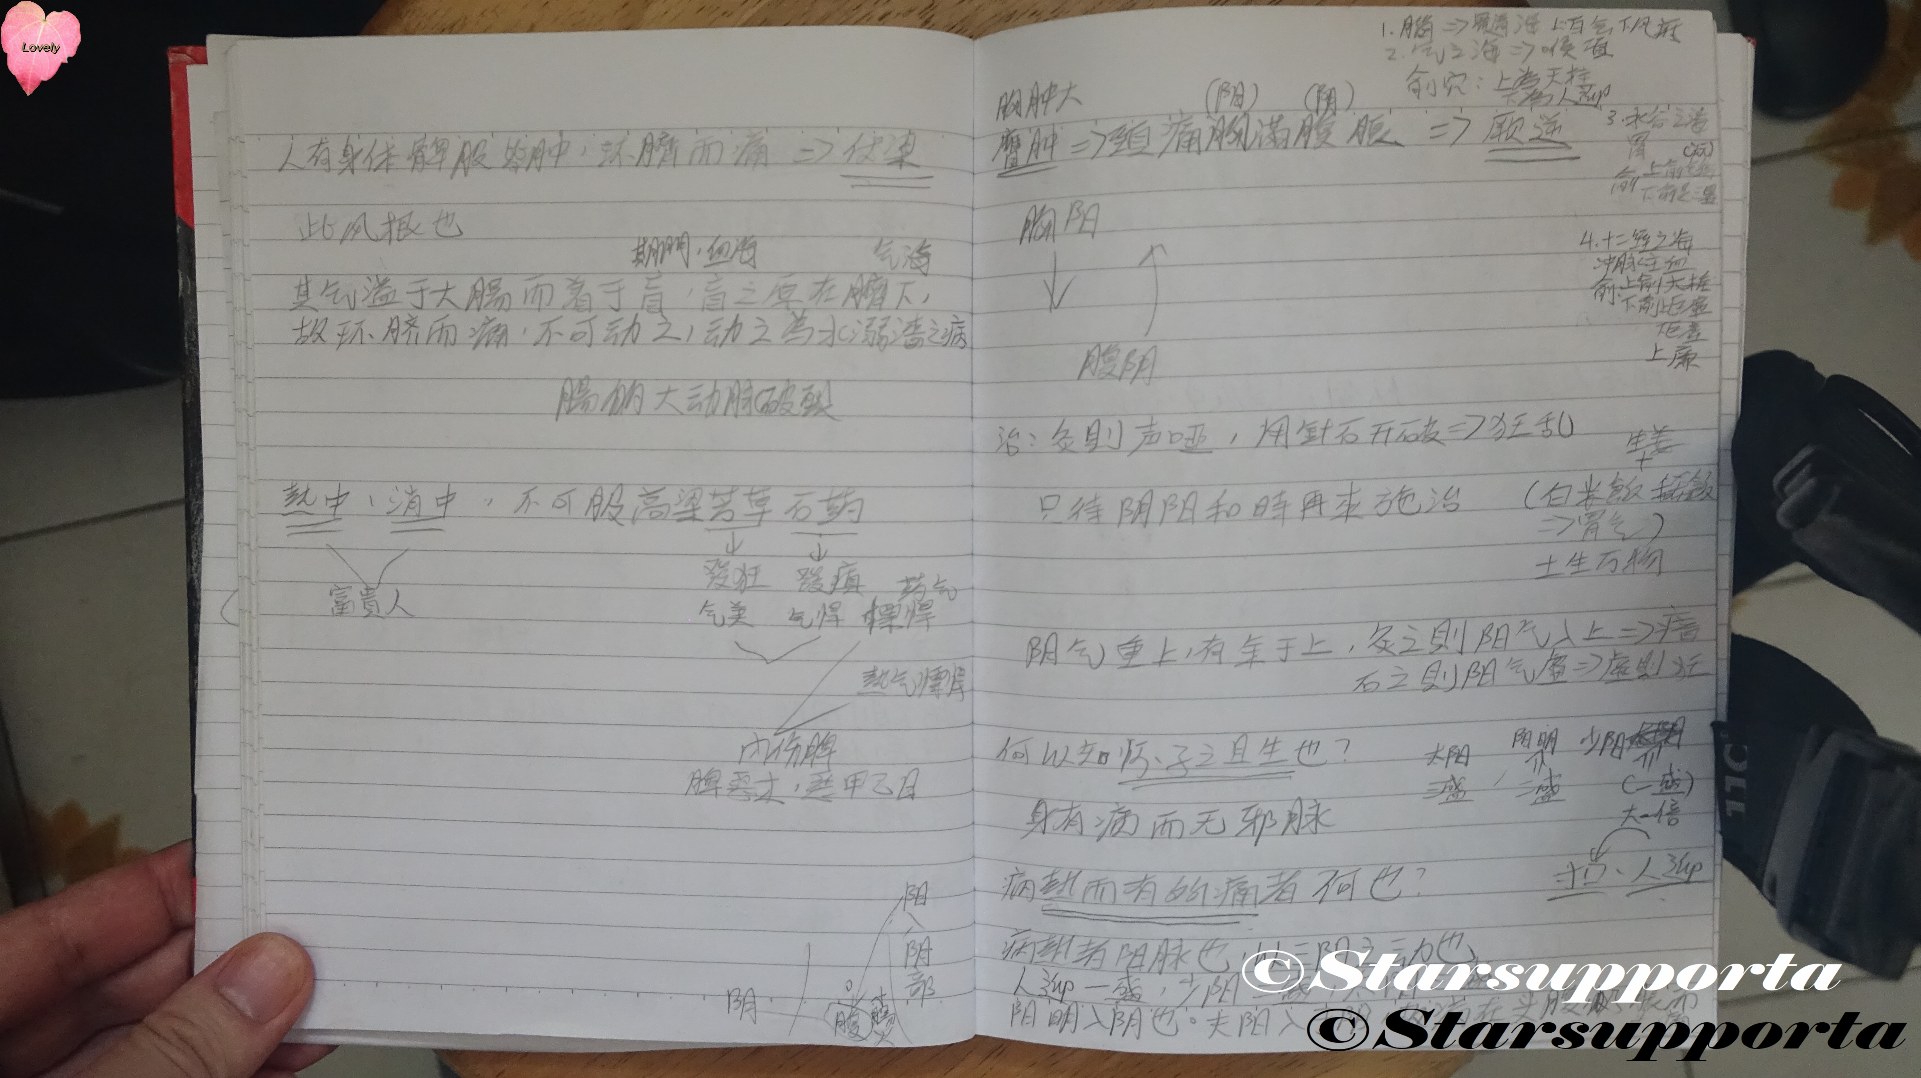 Lovely
人有身体髀股皆肿，环臍而痛 => 伏梁
此风根也
期門．血海 气海
其气溢于大腸而着于盲，盲之原在臍下，
故环脐而痛．不可动之，动之為水溺濇之病
腸的大动脉破裂
热中、消中，不可服高梁芳草石药
富貴人
發狂 發癫 药气
气美 气悍 慓悍
热气慓悍
内伤脾
脾恶木，恶甲乙日
阳入阴部
阴
腹
1. 腦 => 髓海 上百会下风府
2. 气之海 => 喉
俞穴：上為天柱
下為人迎
3. 水谷之海
胃
4. 十二经之海
冲脉主血
上俞大杼
下俞巨虚
上廉
胸肿大 (阳) (阴)
膺肿 => 頸痛胸滿腹脹 => 厥逆
胸阳
腹阴
治：灸則声哑，用針石开破 => 狂乱
只待阴阳和時再来施治
生姜
+
(白米飯 稀飯
=> 胃气)
土生万物
阳气重上，有余于上，灸之則阳气入上 => 瘖
石之則阳气虚 => 虚則狂
何以知怀子之且生也？
太阳 阳明 少阳
三盛，二盛 (一盛)
大一倍
身有病而无邪脉
寸口．人迎
病热而有所痛者何也？
病热者阳脉也，以三阳之动也
人迎一盛，少阳
阳明入阴也。夫阳入
©Starsupporta
©Starsupporta